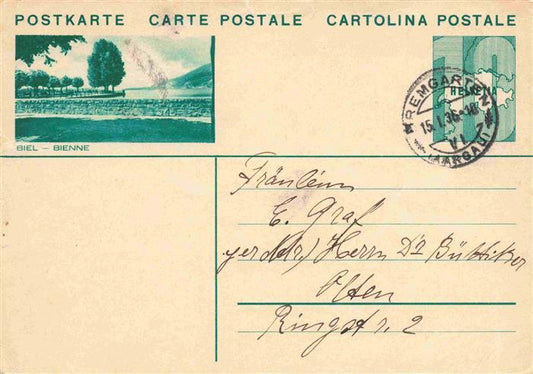 POSTKARTE CARTE POSTALE CARTOLINA POSTALE
10
HELVETIA
BREMGARTEN
15.I.36-18
VI
(AARGAU)
BIEL – BIENNE
Fräulein
E. Graf
Herrn Dr Büttiker
Olten
Ringstr. 2